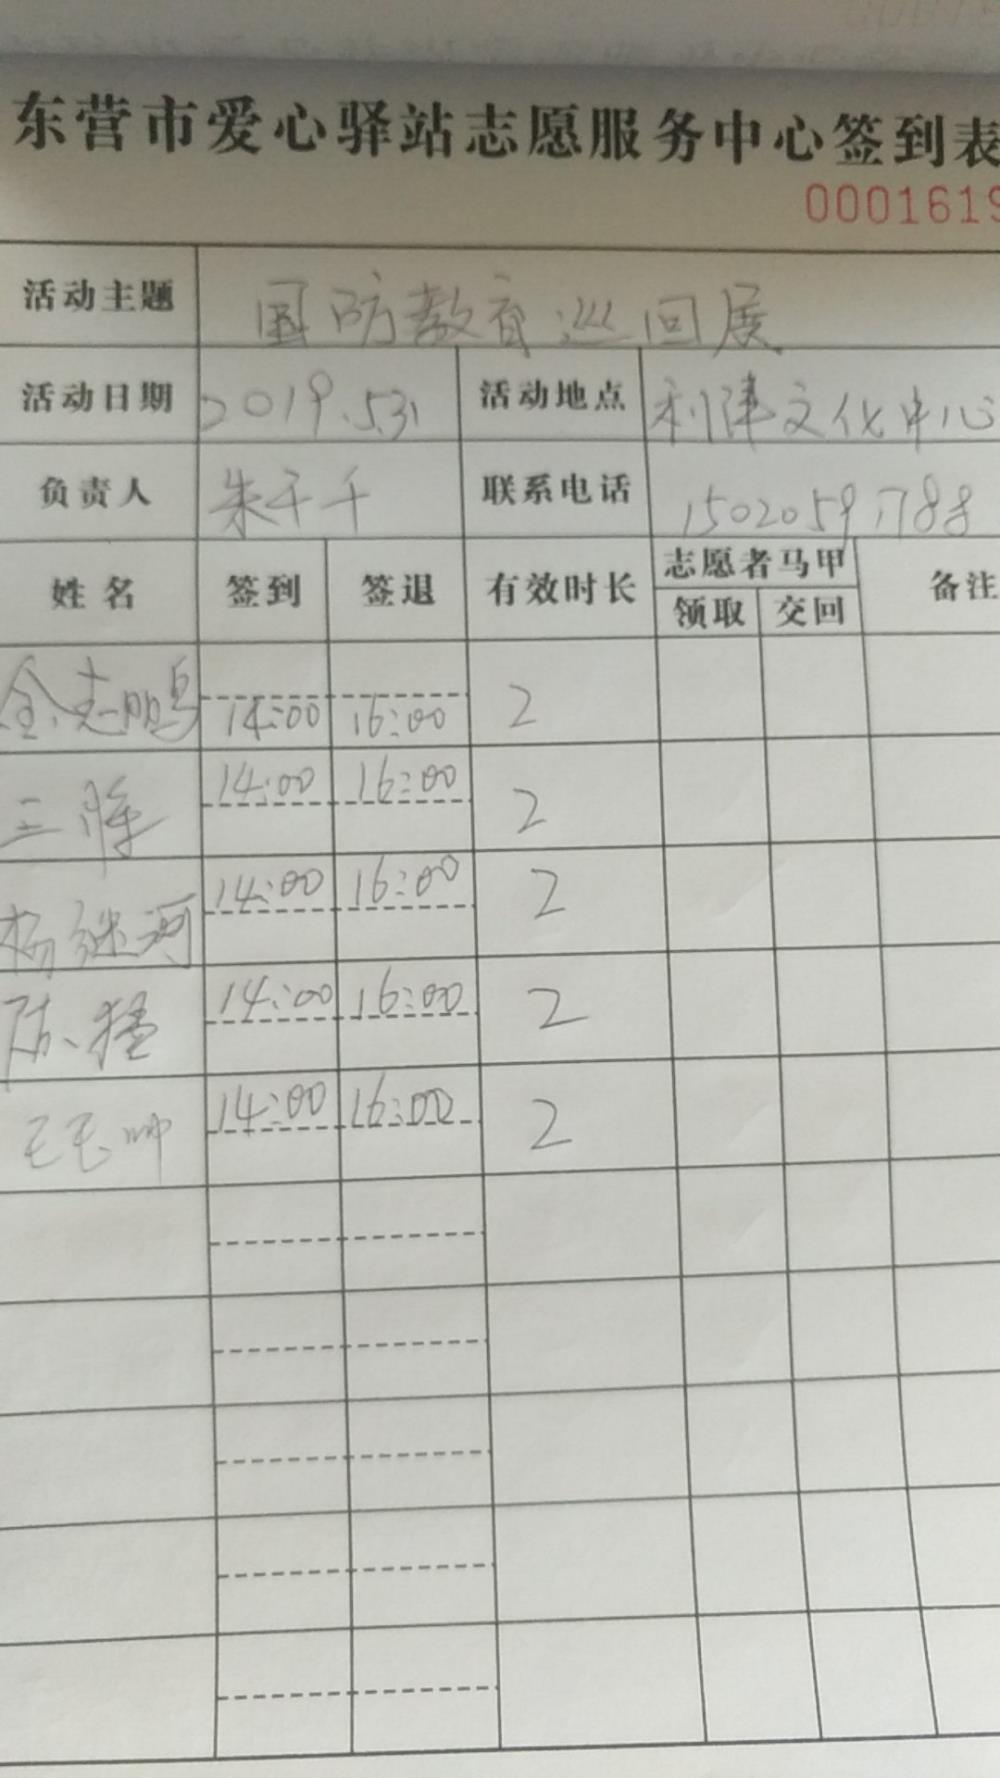 东营市爱心驿站志愿服务中心签到表
0001619
活动主题 国防教育巡回展
活动日期 2019.5.31 活动地点 利津文化中心
负责人 朱千千 联系电话 15020597788
姓名 签到 签退 有效时长 志愿者马甲 备注
领取 交回
14:00 16:00 2
14:00 16:00 2
杨继河 14:00 16:00 2
陈猛 14:00 16:00 2
14:00 16:00 2